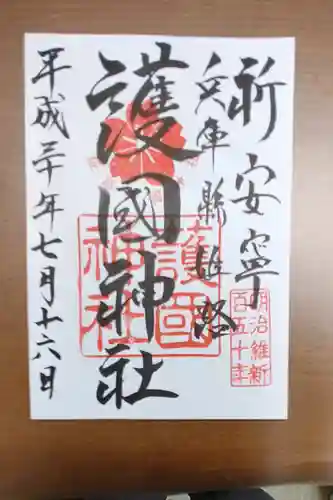 祈安寧
兵庫縣姫路
護國神社
平成三十年七月十六日
護国神社
明治維新
百五十年